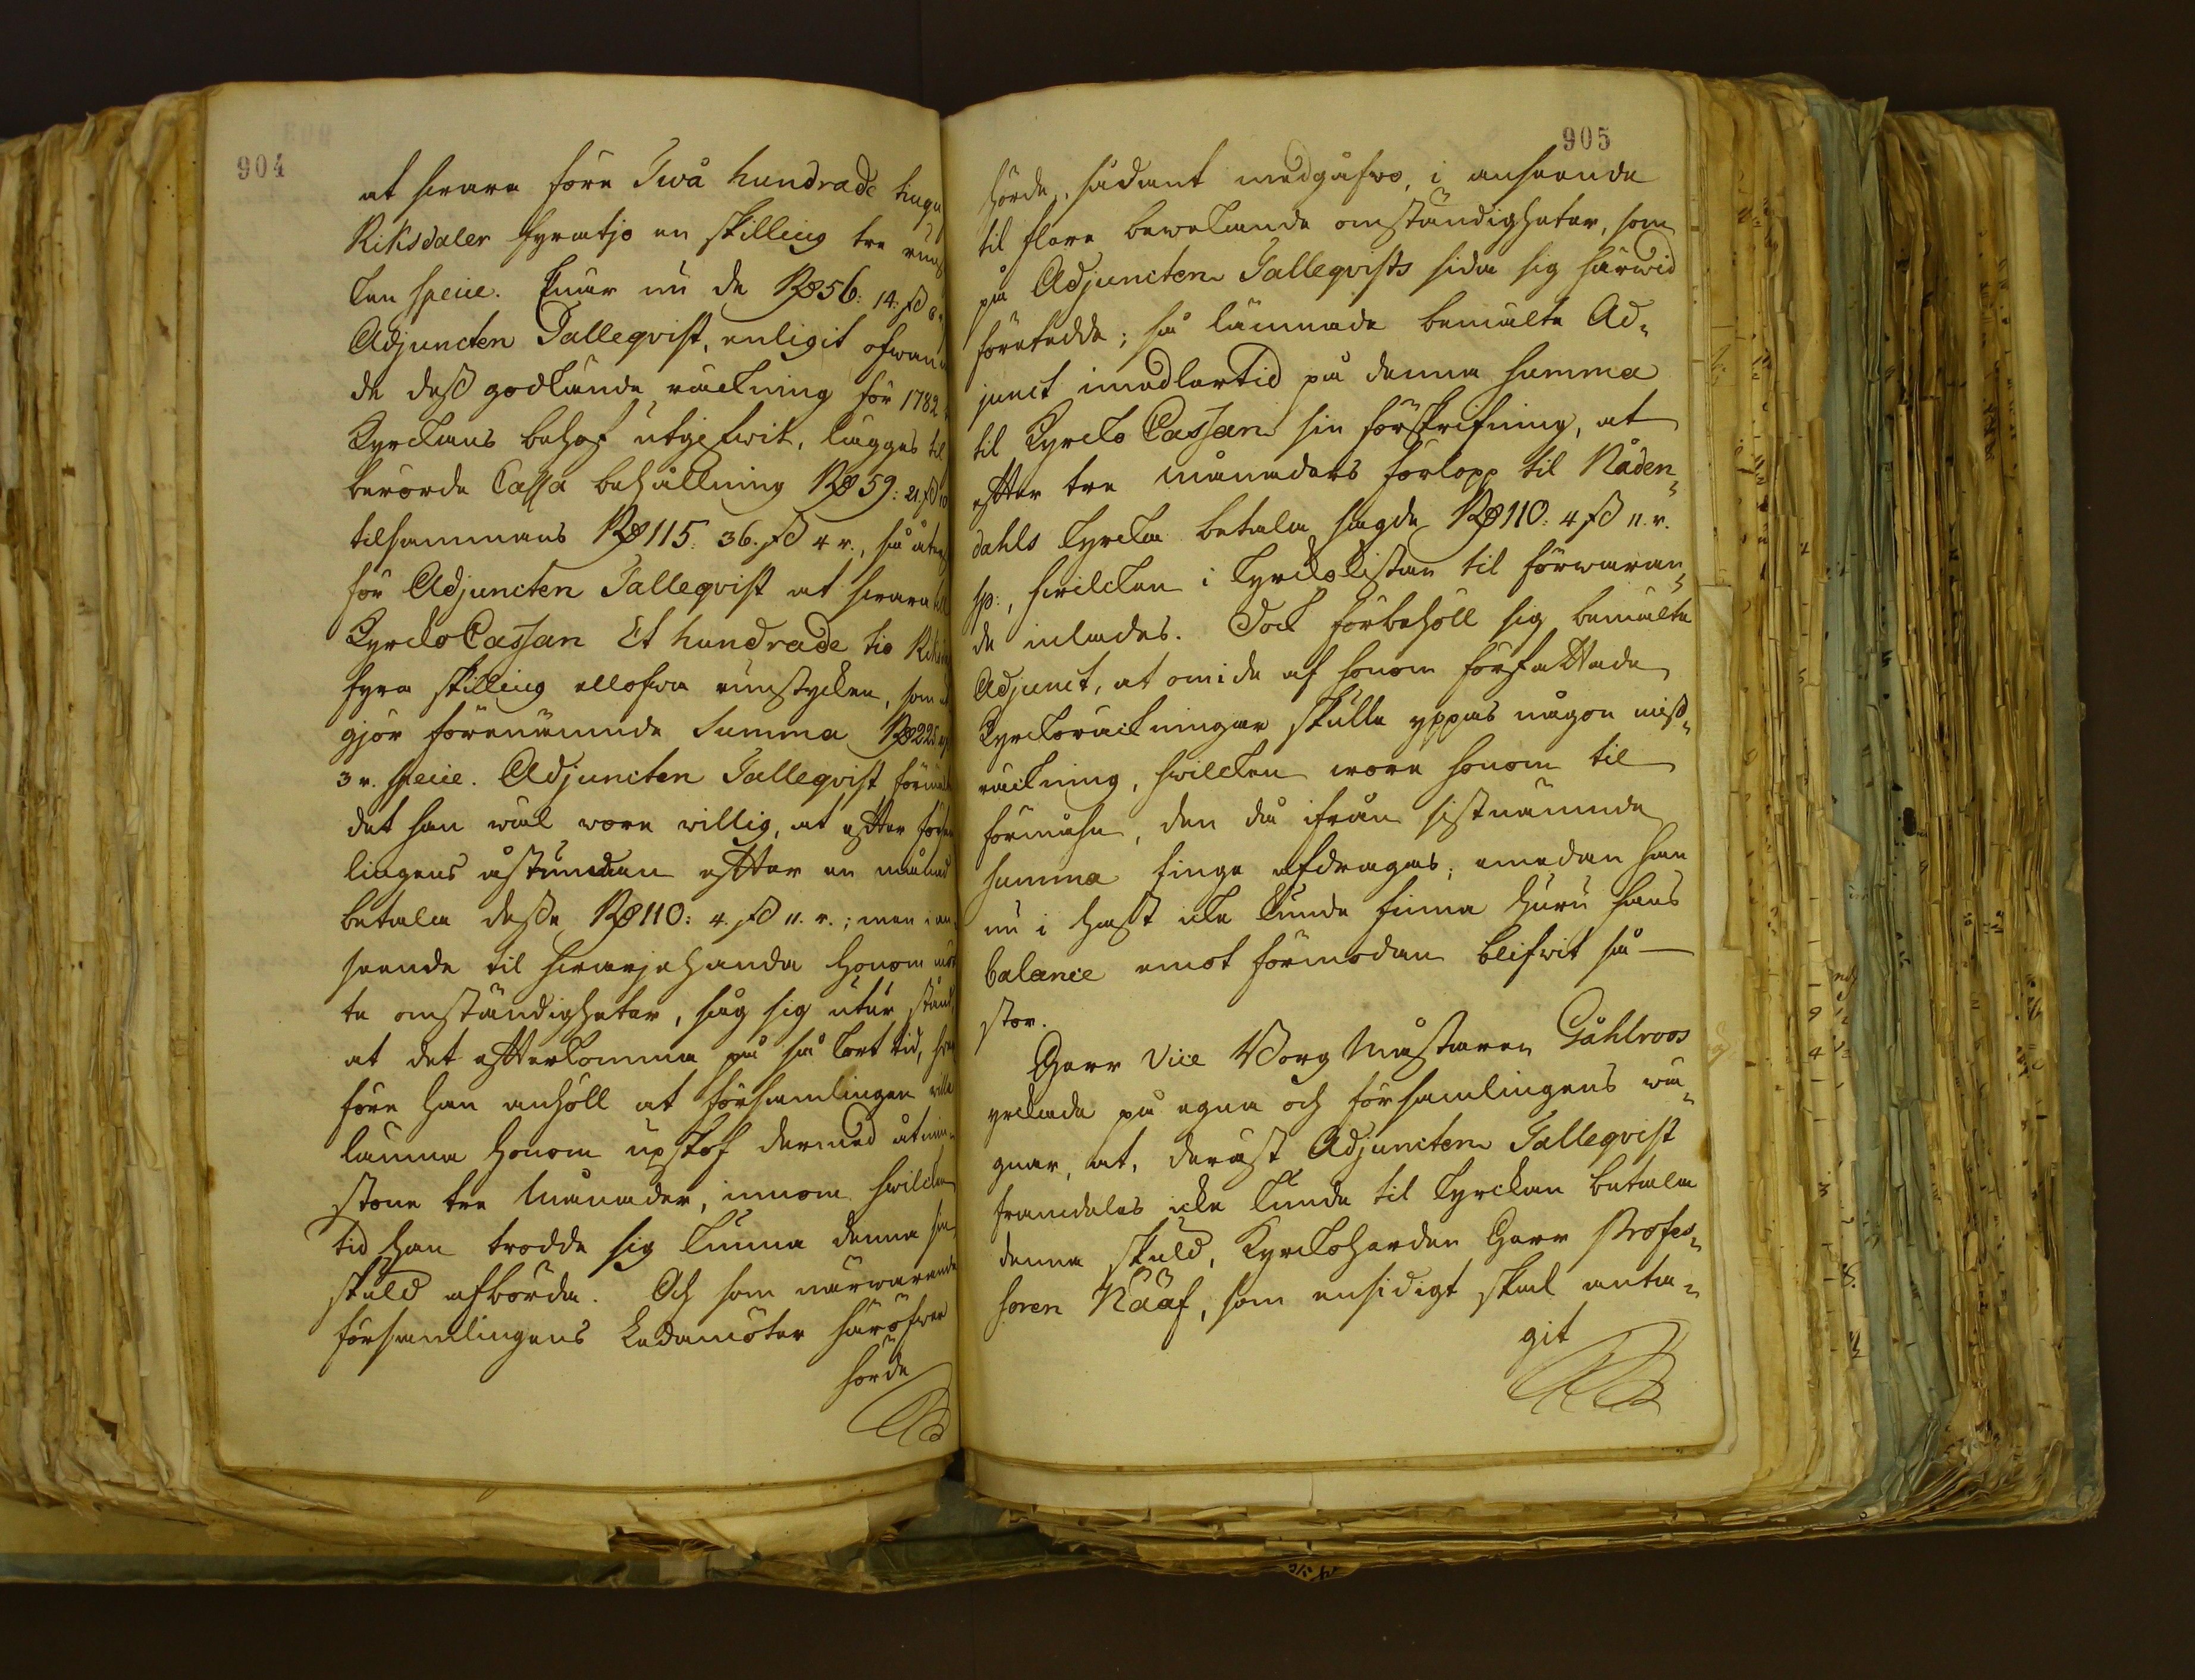 904
at swara före Twå hundrade tiugu
Riksdaler fyratjo en skilling tre runs
ken specie. Enär nu de Rd 56: 14. sd 6.
Adjuncten Talleqvist, enligit ofwan
de dess godkände räckning för 1782
Kyrckans behof utgifwit, lägges til
berörde Cassa behållning Rd 59: 21. sd 10
tilsammans Rd 115: 36. sd 4 r., så åter
för Adjuncten Talleqvist at swara til
Kyrcko Cassan Et hundrade tio Riksd
fyra skilling ellofwa runstycken, som
gjör förenämnde Summa Rd 225
3 r. specie. Adjuncten Talleqvist förmälte
det han wäl wore willig, at efter försam
lingens åstundan efter en månad
betala desse Rd 110: 4. sd 11. r.; men i an
seende til hwarjehanda honom mör
te omständigheter, såg sig utur stånd
at det efterkomma på så kort tid, hwar
före han anhöll at församlingen wille
lämna honom upskof dermed åtmin
stone tre Månader, innom hwilcken
tid han trodde sig kunna denna sin
skuld afbörda. Och som närwarande
församlingens Ledamöter häröfwer
hörde
905
hörde, sådant medgåfwo, i anseende
til flere bewekande omständigheter, som
på Adjuncten Talleqvists sida sig härwid
företedde; så lämnade bemälte Ad¬
junct imedlertid på denna summa
til Kyrcko Cassan sin förskrifning, at
efter tre månaders förlopp til Nåden¬
dahls kyrcka betala sagde Rd 110: 4 sd 11. r.
sp:, hwilcken i kyrckokistan til förwaran¬
de inlades. Dock förbehöll sig bemälte
Adjunct, at om i de af honom författade
Kyrckoräckningar skulle yppas någon miss¬
räckning, hwilcken wore honom til
förmåhn, den då ifrån sistnämnde
summa finge afdragas; emedan han
nu i hast icke kunde finna huru hans
balance emot förmodan blifwit så
stor.
Herr Vice Borg Mästaren Gåhlroos
yrckade på egna och församlingens wä¬
gnar, at, derest Adjuncten Talleqvist
framdeles icke kunde til kyrckan betala
denna skuld, Kyrckoherden Herr Profes¬
soren Nääf, som ensidigt skal anta¬
git